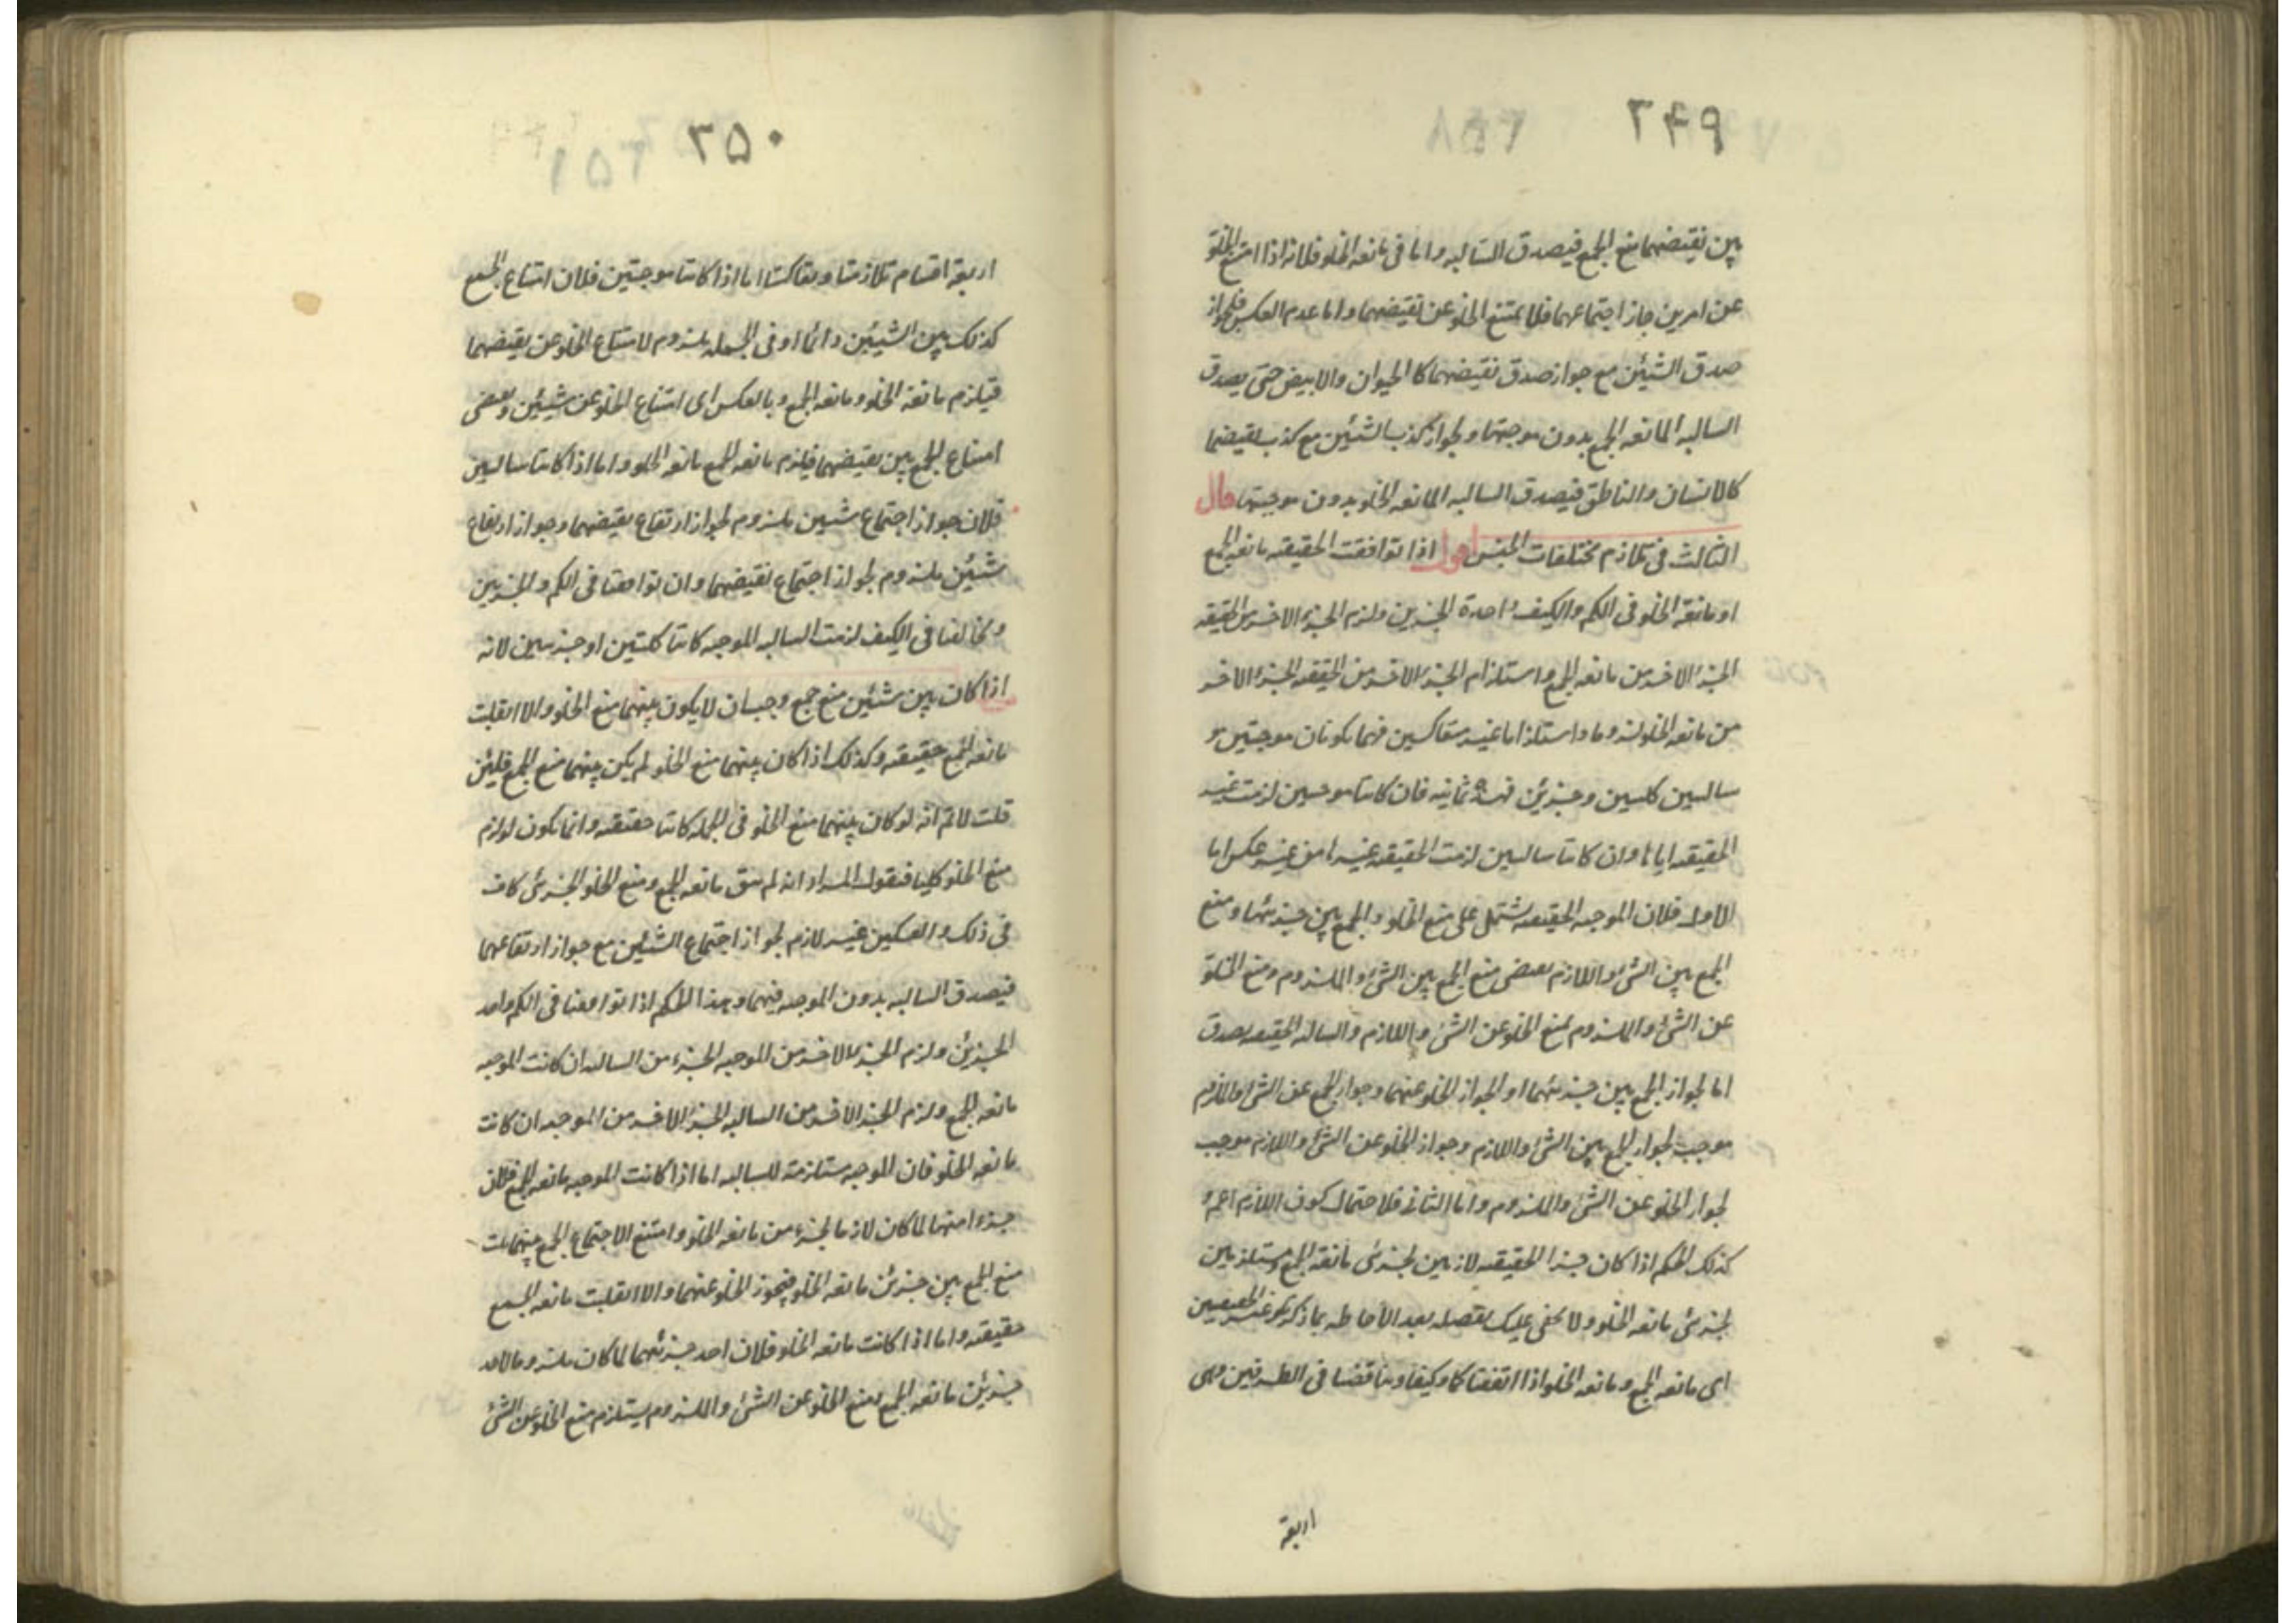 ٢۴٩
بين نقيضهما منع الجمع فيصدق السالبه واما فى مانعه الخلو فلانه اذا امتنع الخلو
عن امرين جاز اجتماعهما فلا يمتنع الخلو عن نقيضهما واما عدم العكس فلجواز
صدق الشيئن مع جواز صدق نقيضهما كالحيوان والابيض حتى يصدق
السالبه المانعه الجمع بدون موجبتها ولجواز كذب الشئين مع كذب نقيضهما
كالانسان والناطق فيصدق السالبه المانعه الخلو بدون موجبتها قال
الثالث فى تلازم مختلفات الجنس اقول اذا توافقت الحقيقه مانعه الجمع
او مانعة الخلو فى الكم والكيف واحدة الجزين ولزم الجزء الاخر من الحقيقه
الجزء الاخر من مانعه الجمع واستلزام الجزء الاخر من الحقيقه الجزء الاخر
من مانعه الخلو لزوما واستلزاما غير متعاكسين فهما يكونان موجبتين و
سالبتين كليتين وجزئين فهذه ثمانيه فان كانتا موجبتين لزمت غير
الحقيقه اياها وان كانتا سالبتين لزمت الحقيقه غيرها من غير عكس اما
الاول فلان الموجبه الحقيقه تشتمل على منع الخلو والجمع بين جزئيها ومنع
الجمع بين الشئ واللازم يقتضى منع الجمع بين الشئ والملزوم ومنع الخلو
عن الشئ والملزوم يمنع الخلو عن الشئ واللازم والسالبه الحقيقه يصدق
اما لجواز الجمع بين جزئيهما او لجواز الخلو عنهما وجواز الجمع عن الشئ والملازم
موجب لجواز الجمع بين الشئ واللازم وجواز الخلو عن الشئ واللازم موجب
لجواز الخلو عن الشئ والملزوم واما الثانى فلاحتمال كون اللازم اعم و
كذلك الحكم اذا كان جزءا الحقيقه لازمين لجزئى مانعة الجمع ومستلزمين
لجزئى مانعه الخلو ولا يخفى عليك تفصيله بعد الاحاطه بما ذكر وغير الحقيقيتين
اى مانعه الجمع ومانعه الخلو اذا اتفقتا كما وكيفا وتناقضا فى الطرفين وهى
اربعة
٢۵٠
اربعة اقسام تلازمتا وتعاكستا اما اذا كانتا موجبتين فلان امتناع الجمع
كذلك بين الشيئين دائما او فى الجمله ملزوم لامتناع الخلو عن نقيضهما
فيلزم مانعة الخلو ومانعه الجمع وبالعكس اى امتناع الخلو عن شيئين يقتضى
امتناع الجمع بين نقيضهما فيلزم مانعه الجمع مانعه الخلو واما اذا كانتا سالبتين
فلان جواز اجتماع شيئين ملزوم لجواز ارتفاع نقيضهما وجواز ارتفاع
شيئن ملزوم لجواز اجتماع نقيضهما وان توافقتا فى الكم والجزئين
وتخالفتا فى الكيف لزمت السالبه الموجبه كانتا كليتين او جزئيتين لانه
اذا كان بين شيئين منع جمع وجب ان لا يكون بينهما منع الخلو والا انقلبت
مانعه الجمع حقيقته وكذلك اذا كان بينهما منع الخلو لم يكن بينهما منع الجمع فلئن
قلت لانم انه لو كان بينهما منع الخلو فى الجمله كانتا حقيقه وانما يكون لو لزم
منع الخلو كليا فنقول المراد انه لم يبق مانعه الجمع ومنع الخلو الجزئى كاف
فى ذلك والعكس غير لازم لجواز اجتماع الشيئين مع جواز ارتفاعهما
فيصدق السالبه بدون الموجبه فيهما وهذا الحكم اذا توافقتا فى الكم واحد
الجزئين ولزم الجزء الاخر من الموجبه الجزء من السالبه ان كانت الموجبه
مانعه الجمع ولزم الجزء الاخر من السالبه الجزء الاخر من الموجبه ان كانت
مانعه الخلو فان الموجبه مستلزمة للسالبه اما اذا كانت الموجبه مانعه الجمع فلان
جزءا منها لما كان لازما لجزء من مانعه الخلو وامتنع الاجتماع الجمع بينهما
منع الجمع بين جزئى مانعه الخلو فيجوز الخلو عنهما والا انقلبت مانعه الجمع
حقيقته واما اذا كانت مانعه الخلو فلان احد جزئيهما لما كان ملزوما لاحد
جزئين مانعه الجمع ومنع الخلو عن الشئ والملزوم يستلزم منع الخلو عن الشئ